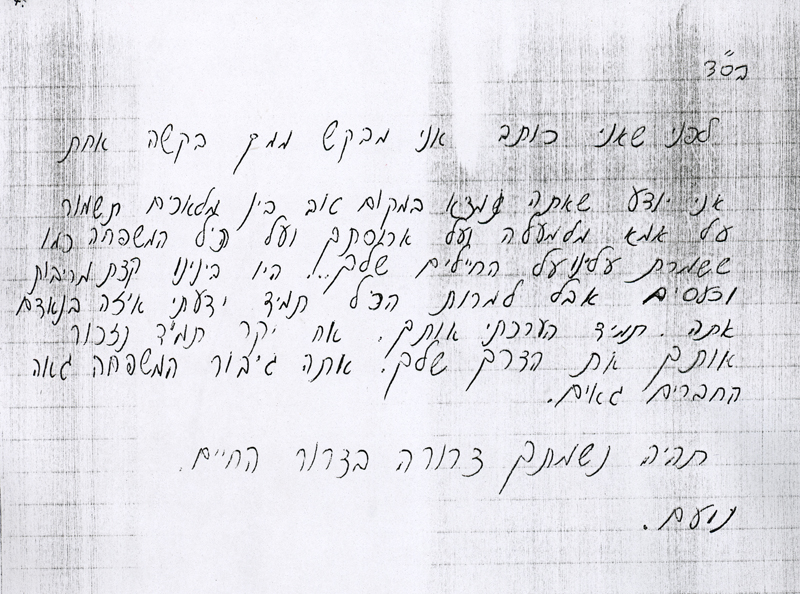 בס"ד
לפני שאני כותב אני מבקש ממך בקשה אחת
אני יודע שאתה נמצא במקום טוב בין מלאכים תשמור
על אמא מלמעלה ועל ארוסתך ועל כל המשפחה כמו
ששמרת עלינו על החיילים שלך... היו בינינו קצת מריבות
וכעסים אבל למרות הכל תמיד ידעתי איזה בנאדם
אתה. תמיד הערכתי אותך. אח יקר תמיד נזכור
אותך את הדרך שלך. אתה גיבור המשפחה גאה
החברים גאים.
תהיה נשמתך צרורה בצרור החיים.
נועם.